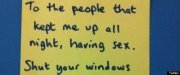 To the people that
kept me up all
night, having sex.
Shut your windows